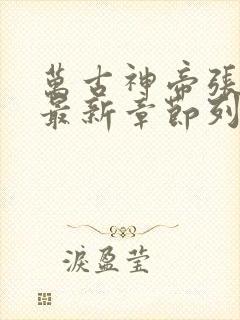 萬古神帝張
最新章節列
淚盈瑩